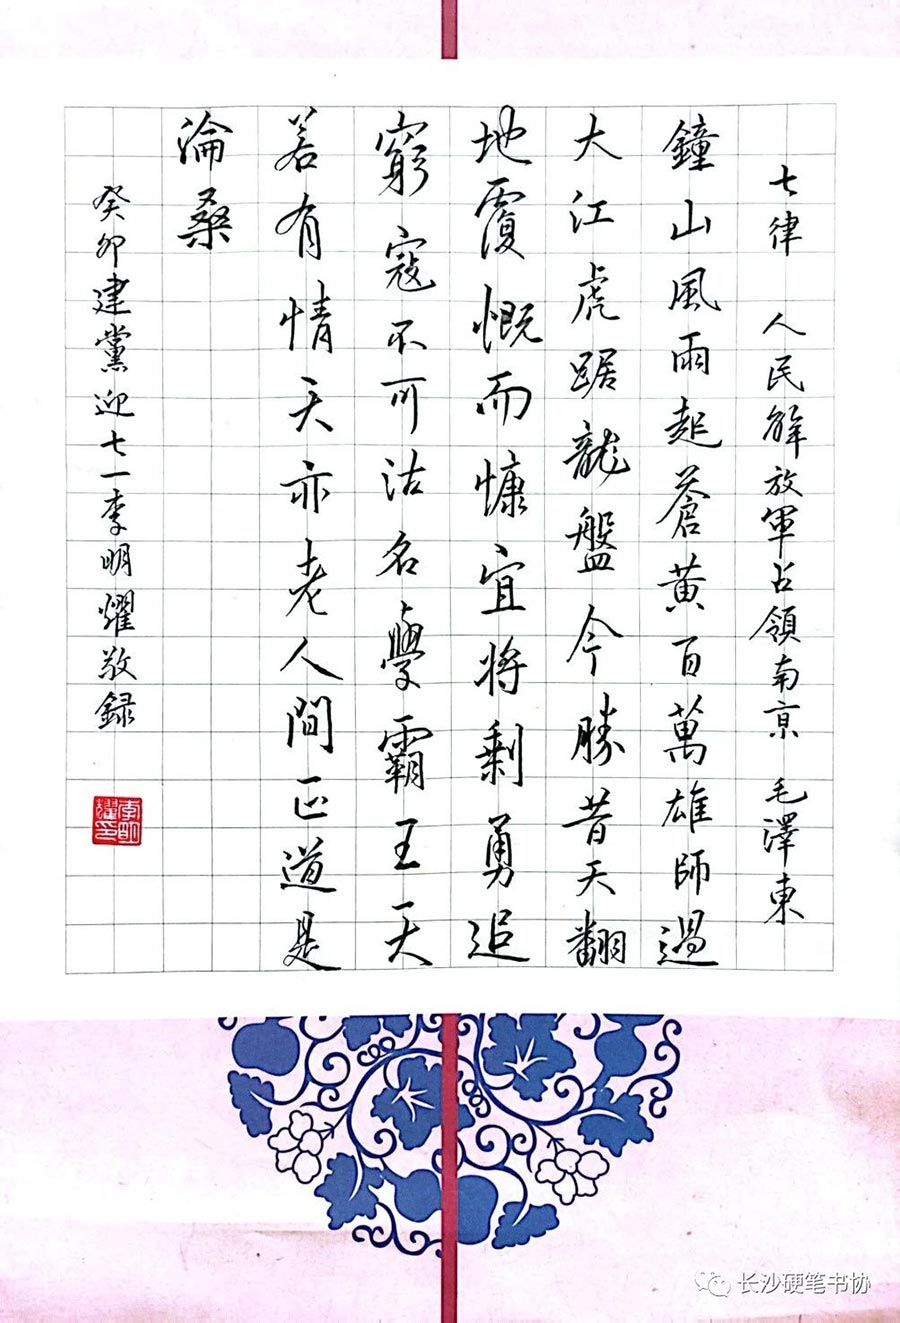 七律 人民解放軍占領南京 毛澤東
鐘山風雨起蒼黃百萬雄師過
大江虎踞龍盤今勝昔天翻
地覆慨而慷宜將剩勇追
窮寇不可沽名學霸王天
若有情天亦老人間正道是
滄桑
癸卯建黨迎七一李明耀敬録
李明耀印
长沙硬笔书协